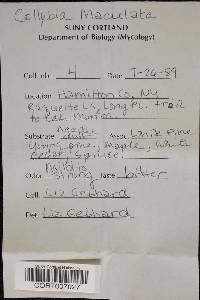 Collybia Maculata
SUNY CORTLAND
Department of Biology (Mycology)
Coll. no. 4 Date 7-26-89
Location Hamilton Co, NY
Raquette Lk, Long Pt. trail
to
Substrate Needle Assoc. White Pine
pine, Maple, White
Cedar
Odor Strong Taste bitter
Coll. Liz Gebhard
Det. Liz Gebhard